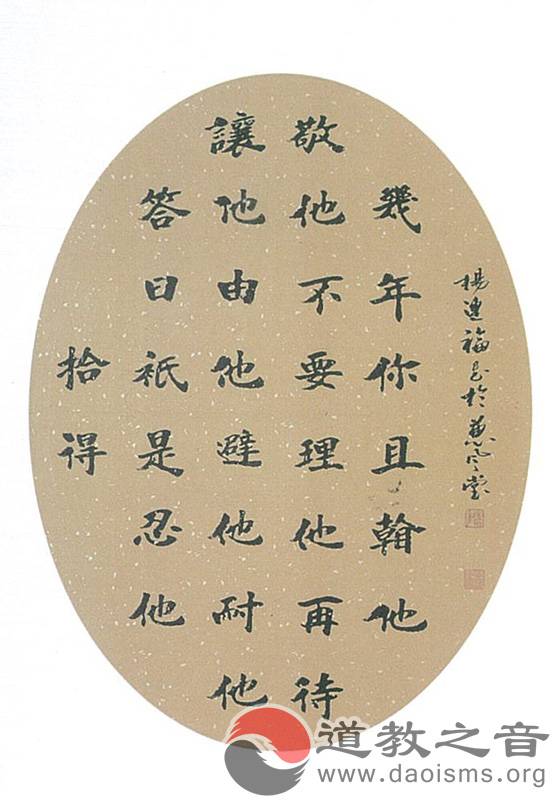 拾得
答曰祇是忍他
讓他由他避他耐他
敬他不要理他再待
幾年你且翰他
楊連福書於蕙風堂
道教之音
www.daoisms.org